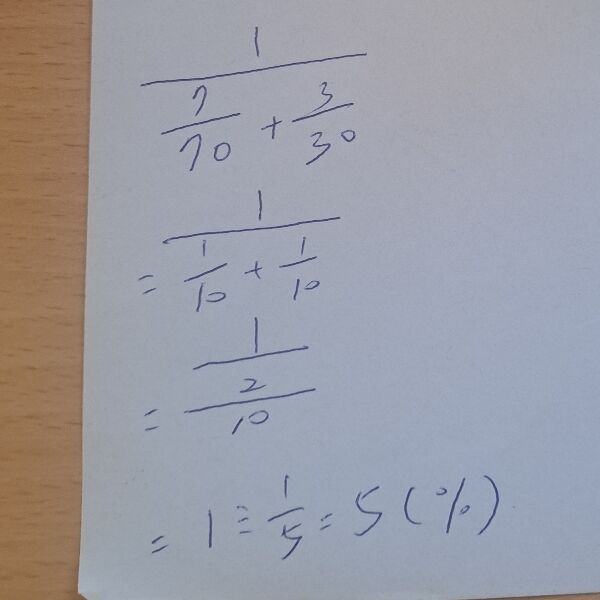 1
7/70 + 3/30
1
= 1/10 + 1/10
1
= 2/10
= 1 ÷ 1/5 = 5 (%)